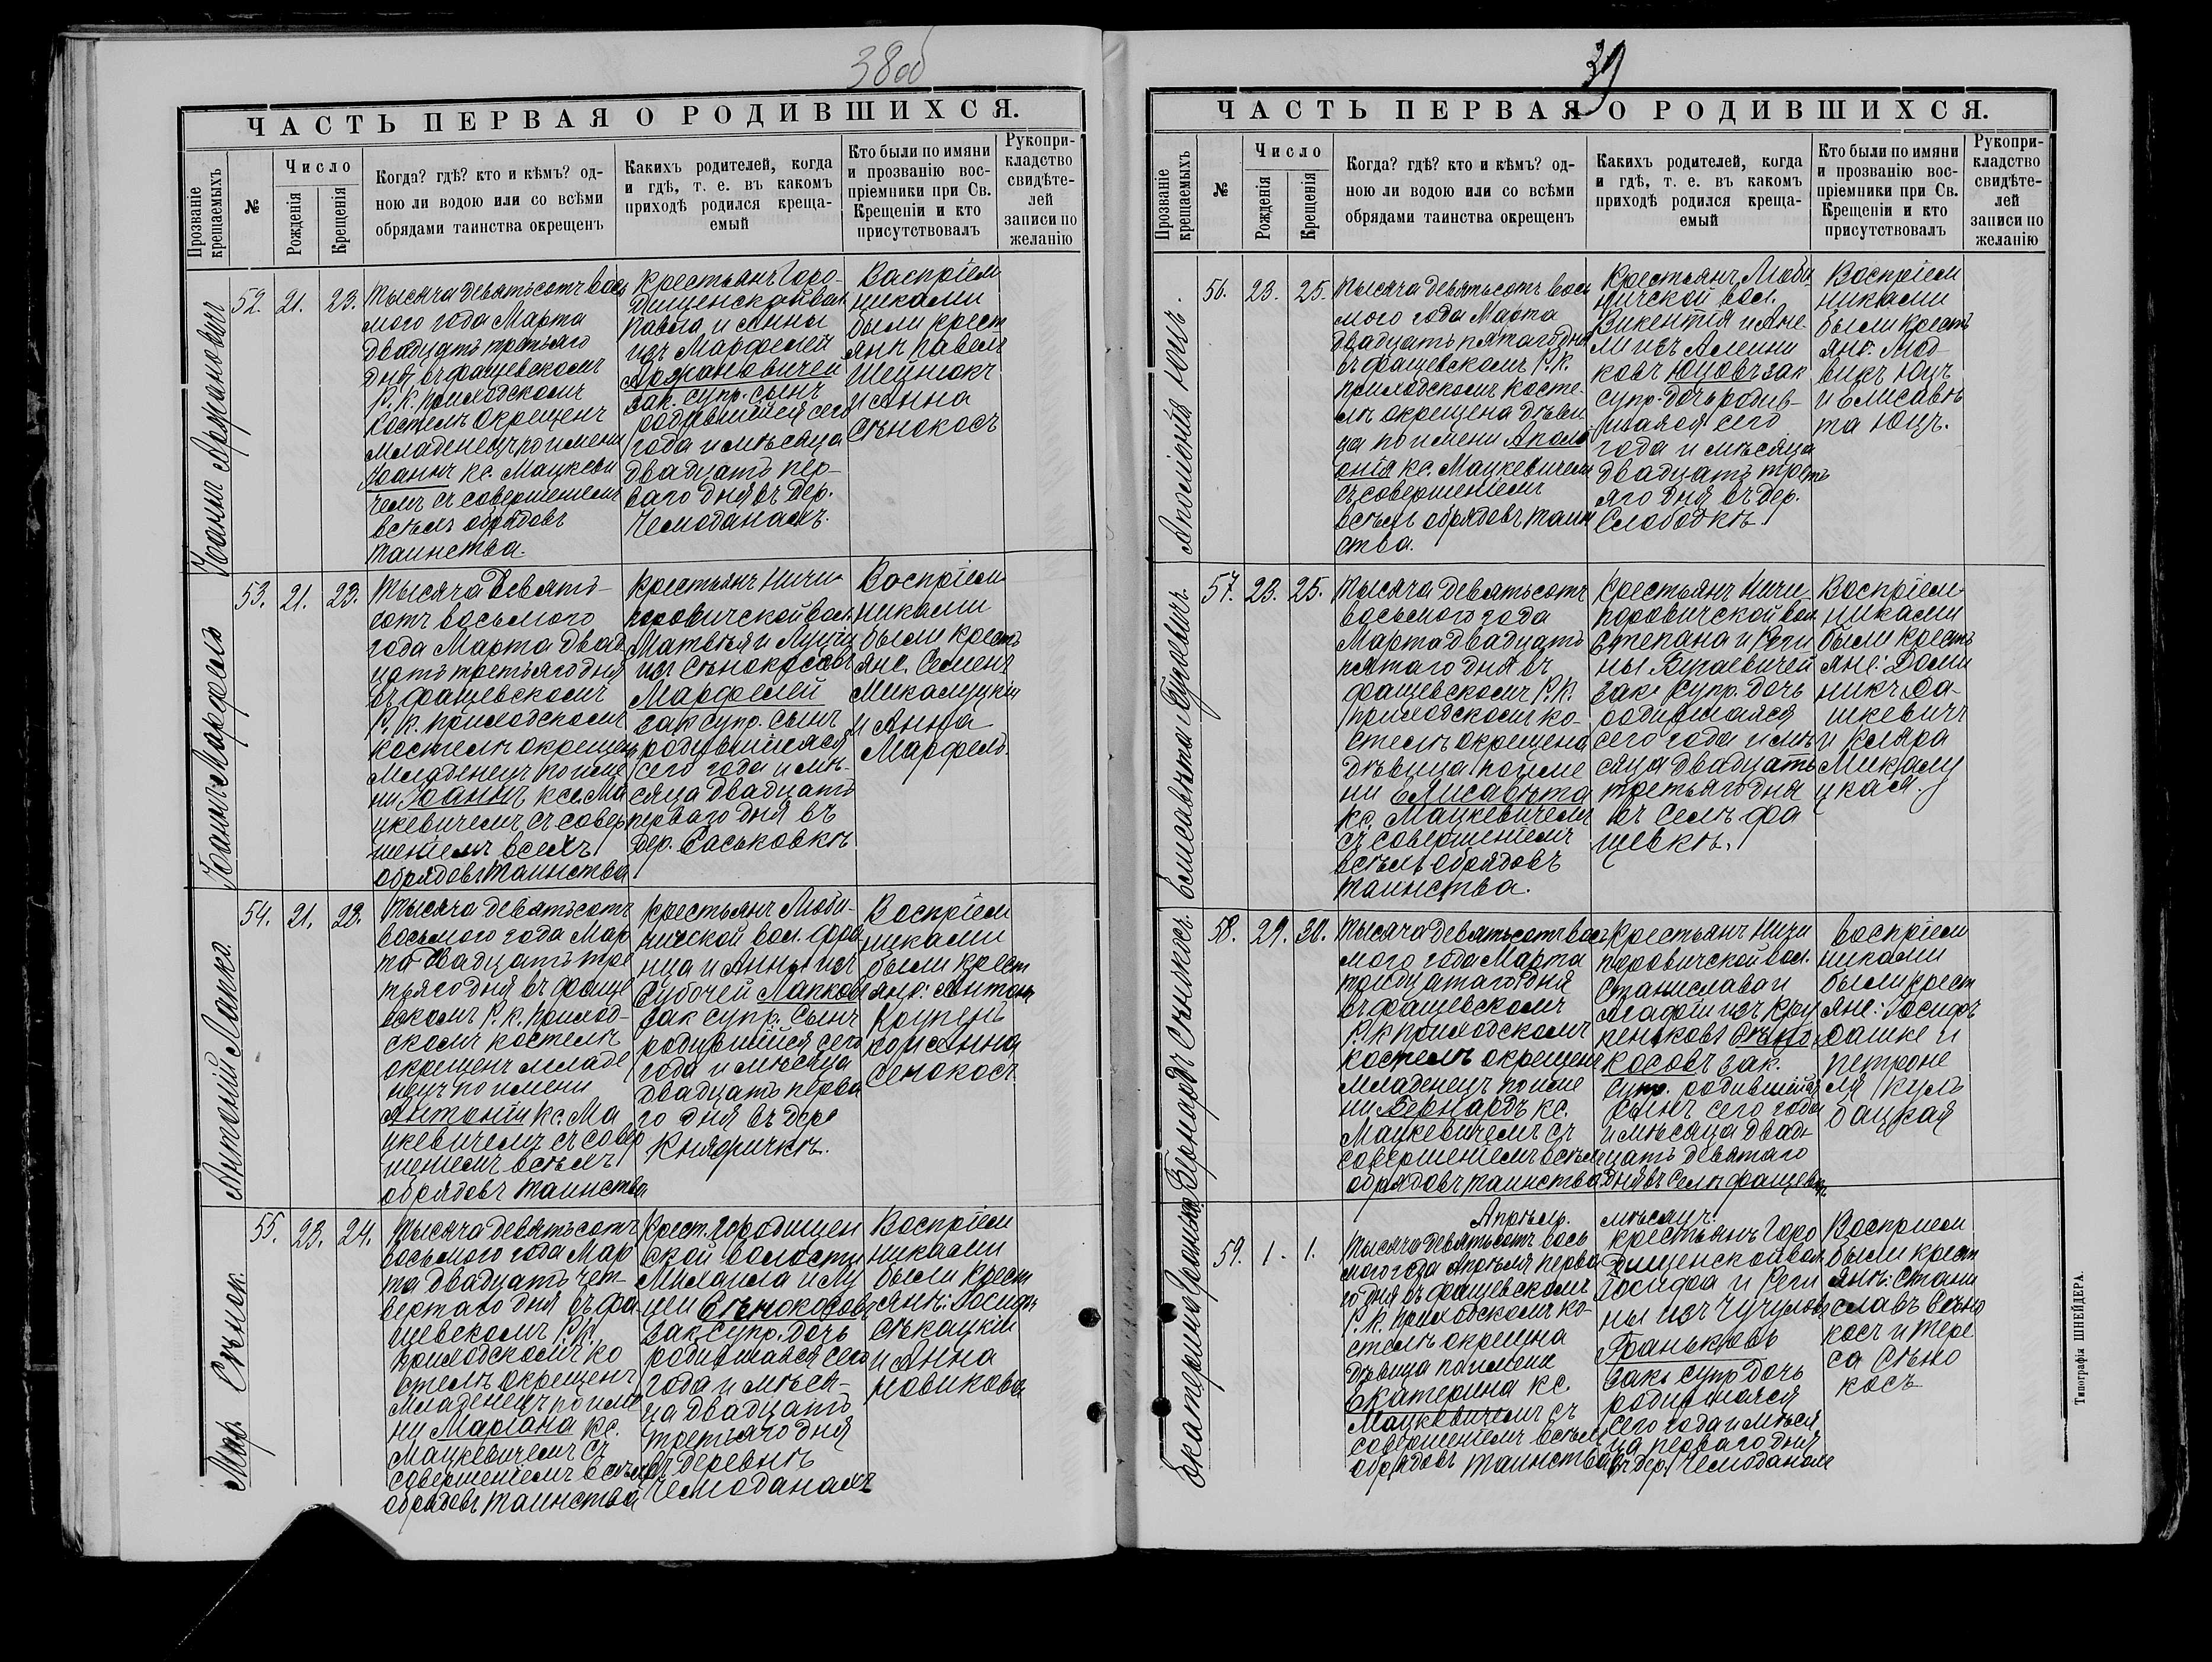 38об
ЧАСТЬ ПЕРВАЯ О РОДИВШИХСЯ.
Прозваніе крещаемыхъ
№
Число
Рожденія
Крещенія
Когда? гдѣ? кто и кѣмъ? од-
ною ли водою или со всѣми
обрядами таинства окрещенъ
Какихъ родителей, когда
и гдѣ, т. е. въ какомъ
приходѣ родился креща-
емый
Кто были по имяни
и прозванію вос-
пріемники при Св.
Крещеніи и кто
присутствовалъ
Рукопри-
кладство
свидѣте-
лей
записи по
желанію
52. 21. 23.
Тысяча девятьсотъ вось
мого года Марта
двадцать третьяго
дня въ фащевскомъ
Р. К. приходскомъ
костелѣ окрещенъ
младенецъ по имени
Іоаннъ кс. Мацкеви
чемъ съ совершеніемъ
всѣхъ обрядовъ
таинства.
Крестьянъ Горо-
дищенской вол
Павла и Анны
изъ Марфелей
зак. супр. сынъ
родившійся сего
года и мѣсяца
двадцать пер-
ваго дня въ дер.
Чемоданахъ.
Воспріем
никами
были крест
яне Павелъ
и Анна
Сѣнокосъ
Іоаннъ Марфель
53. 21. 23.
Тысяча девять-
сотъ восьмого
года Марта двад
цать третьяго дня
въ фащевскомъ
Р. К. приходскомъ
костелѣ окрещенъ
младенецъ по име
ни Іоаннъ кс. Ма
цкевичемъ съ совер
шеніемъ всехъ
обрядовъ таинства
Крестьянъ Ничи-
поровичской вол.
Матвѣя и Луціи
изъ Сѣнокосовъ
Марфелей
зак супр. сынъ
родившійся
сего года и мѣ-
сяца двадцать
перваго дня въ
дер. Васьковкѣ
Воспріем
никами
были крестъ
яне. Семенъ
Микалуцкій
и Анна
Марфель.
Антоній Лапко.
54. 21. 23.
Тысяча девятьсотъ
восьмого года Мар
та двадцать тре
тьяго дня въ фаще
вскомъ Р. К. приход-
скомъ костелѣ
окрещенъ младе
нецъ по имени
Антоній кс. Ма
цкевичемъ съ совер
шеніемъ всѣхъ
обрядовъ таинства
Крестьянъ
ничской вол. Фра
нца и Анны изъ
зак супр. сынъ
родившійся сего
года и мѣсяца
двадцать перва
го дня въ дере
Княжичкѣ.
Воспріем
никами
были крест
яне: Антонъ
и Анна
Сенокосъ
Мар. Сѣнок.
55. 23. 24.
Тысяча девятьсотъ
восьмого года Мар
та двадцать чет-
вертаго дня въ фа-
щевскомъ Р. К.
приходскомъ ко
стелѣ окрещенъ
младенецъ по име
ни Маріана кс.
Мацкевичемъ съ
совершеніемъ всѣхъ
обрядовъ таинства
Крест. Городищен
ской волости
Михаила и Лу
ціи Сѣнокосовъ
зак супр. дочь
родившаяся сего
года и мѣся-
ца двадцать
третьяго дня
въ деревнѣ
Чемоданахъ
Воспріем
никами
были крест
янѣ: Іосифъ
Сѣкацкій
и Анна
Новикова
39
ЧАСТЬ ПЕРВАЯ О РОДИВШИХСЯ.
Прозваніе крещаемыхъ
№
Число
Рожденія
Крещенія
Когда? гдѣ? кто и кѣмъ? од-
ною ли водою или со всѣми
обрядами таинства окрещенъ
Какихъ родителей, когда
и гдѣ, т. е. въ какомъ
приходѣ родился креща-
емый
Кто были по имяни
и прозванію вос-
пріемники при Св.
Крещеніи и кто
присутствовалъ
Рукопри-
кладство
свидѣте-
лей
записи по
желанію
Аполонія Юцъ.
56. 23. 25.
Тысяча девятьсотъ вось
мого года Марта
двадцать пятаго дня
въ фащевскомъ Р. К.
приходскомъ косте-
лѣ окрещена дѣви
ца по имени Аполо
онія кс. Мацкевичемъ
съ совершеніемъ
всѣхъ обрядовъ таин
ства.
Крестьянъ
ничской вол.
Викентія и Ане-
ли изъ
ковъ Юцовъ зак
супр. дочь родив-
шаяся сего
года и мѣсяца
двадцать треть
яго дня въ дер.
Слободкѣ.
Воспріем
никами
были крестъ
яне. Люд
викъ Юцъ
и Елисаве
та Юцъ.
57. 23. 25.
Тысяча девятьсотъ
восьмого года
Марта двадцать
пятаго дня въ
фащевскомъ Р. К.
приходскомъ ко-
стелѣ окрещена
дѣвица по име
ни Елисавѣта
кс. Мацкевичемъ
съ совершеніемъ
всѣхъ обрядовъ
таинства.
Крестьянъ Ничи-
поровичской вол
Степана и Реги
ны
зак супр. дочь
родившаяся
сего года и мѣ
сяца двадцать
третьяго дня
въ селѣ фа
щевкѣ.
Воспріем
никами
были крестъ
яне: Доми
никъ
шкевичъ
и Клара
Микалу
цкая.
Бернардъ Сѣнокосъ
58. 29. 30.
Тысяча девятьсотъ вось
мого года Марта
тридцатаго дня
въ фащевскомъ
Р. К приходскомъ
костелѣ окрещенъ
младенецъ по име
ни Бернардъ кс.
Мацкевичемъ съ
совершеніемъ всѣхъ
обрядовъ таинства
Крестьянъ Ничи
поровичской вол.
Станислава и
Агафіи изъ
Сѣно
косовъ зак.
супр. родившійся
сынъ сего года
и мѣсяца двад-
цать девятаго
дня въ селѣ фащевкѣ
Воспріем
никами
были крест
яне: Іосифъ
и
Петроне
ля
Апрѣль. мѣсяцъ.
59. 1. 1.
Тысяча девятьсотъ вось
мого года Апрѣля перва
го дня въ фащевскомъ
Р. К. приходскомъ ко-
стелѣ окрещена
дѣвица по имени
Екатерина кс.
Мацкевичемъ съ
совершеніемъ всѣхъ
обрядовъ таинства
Крестьянъ Горо
дищенской вол
Іосифа и Реги
ны изъ
зак супр дочь
родившаяся
сего года и мѣся
ца перваго дня
въ дер. Чемоданахъ
Воспріем
были крест
янѣ: Стани
славъ Сѣно
косъ и Тере
са Сѣно
косъ
Типографія ШНЕЙДЕРА.